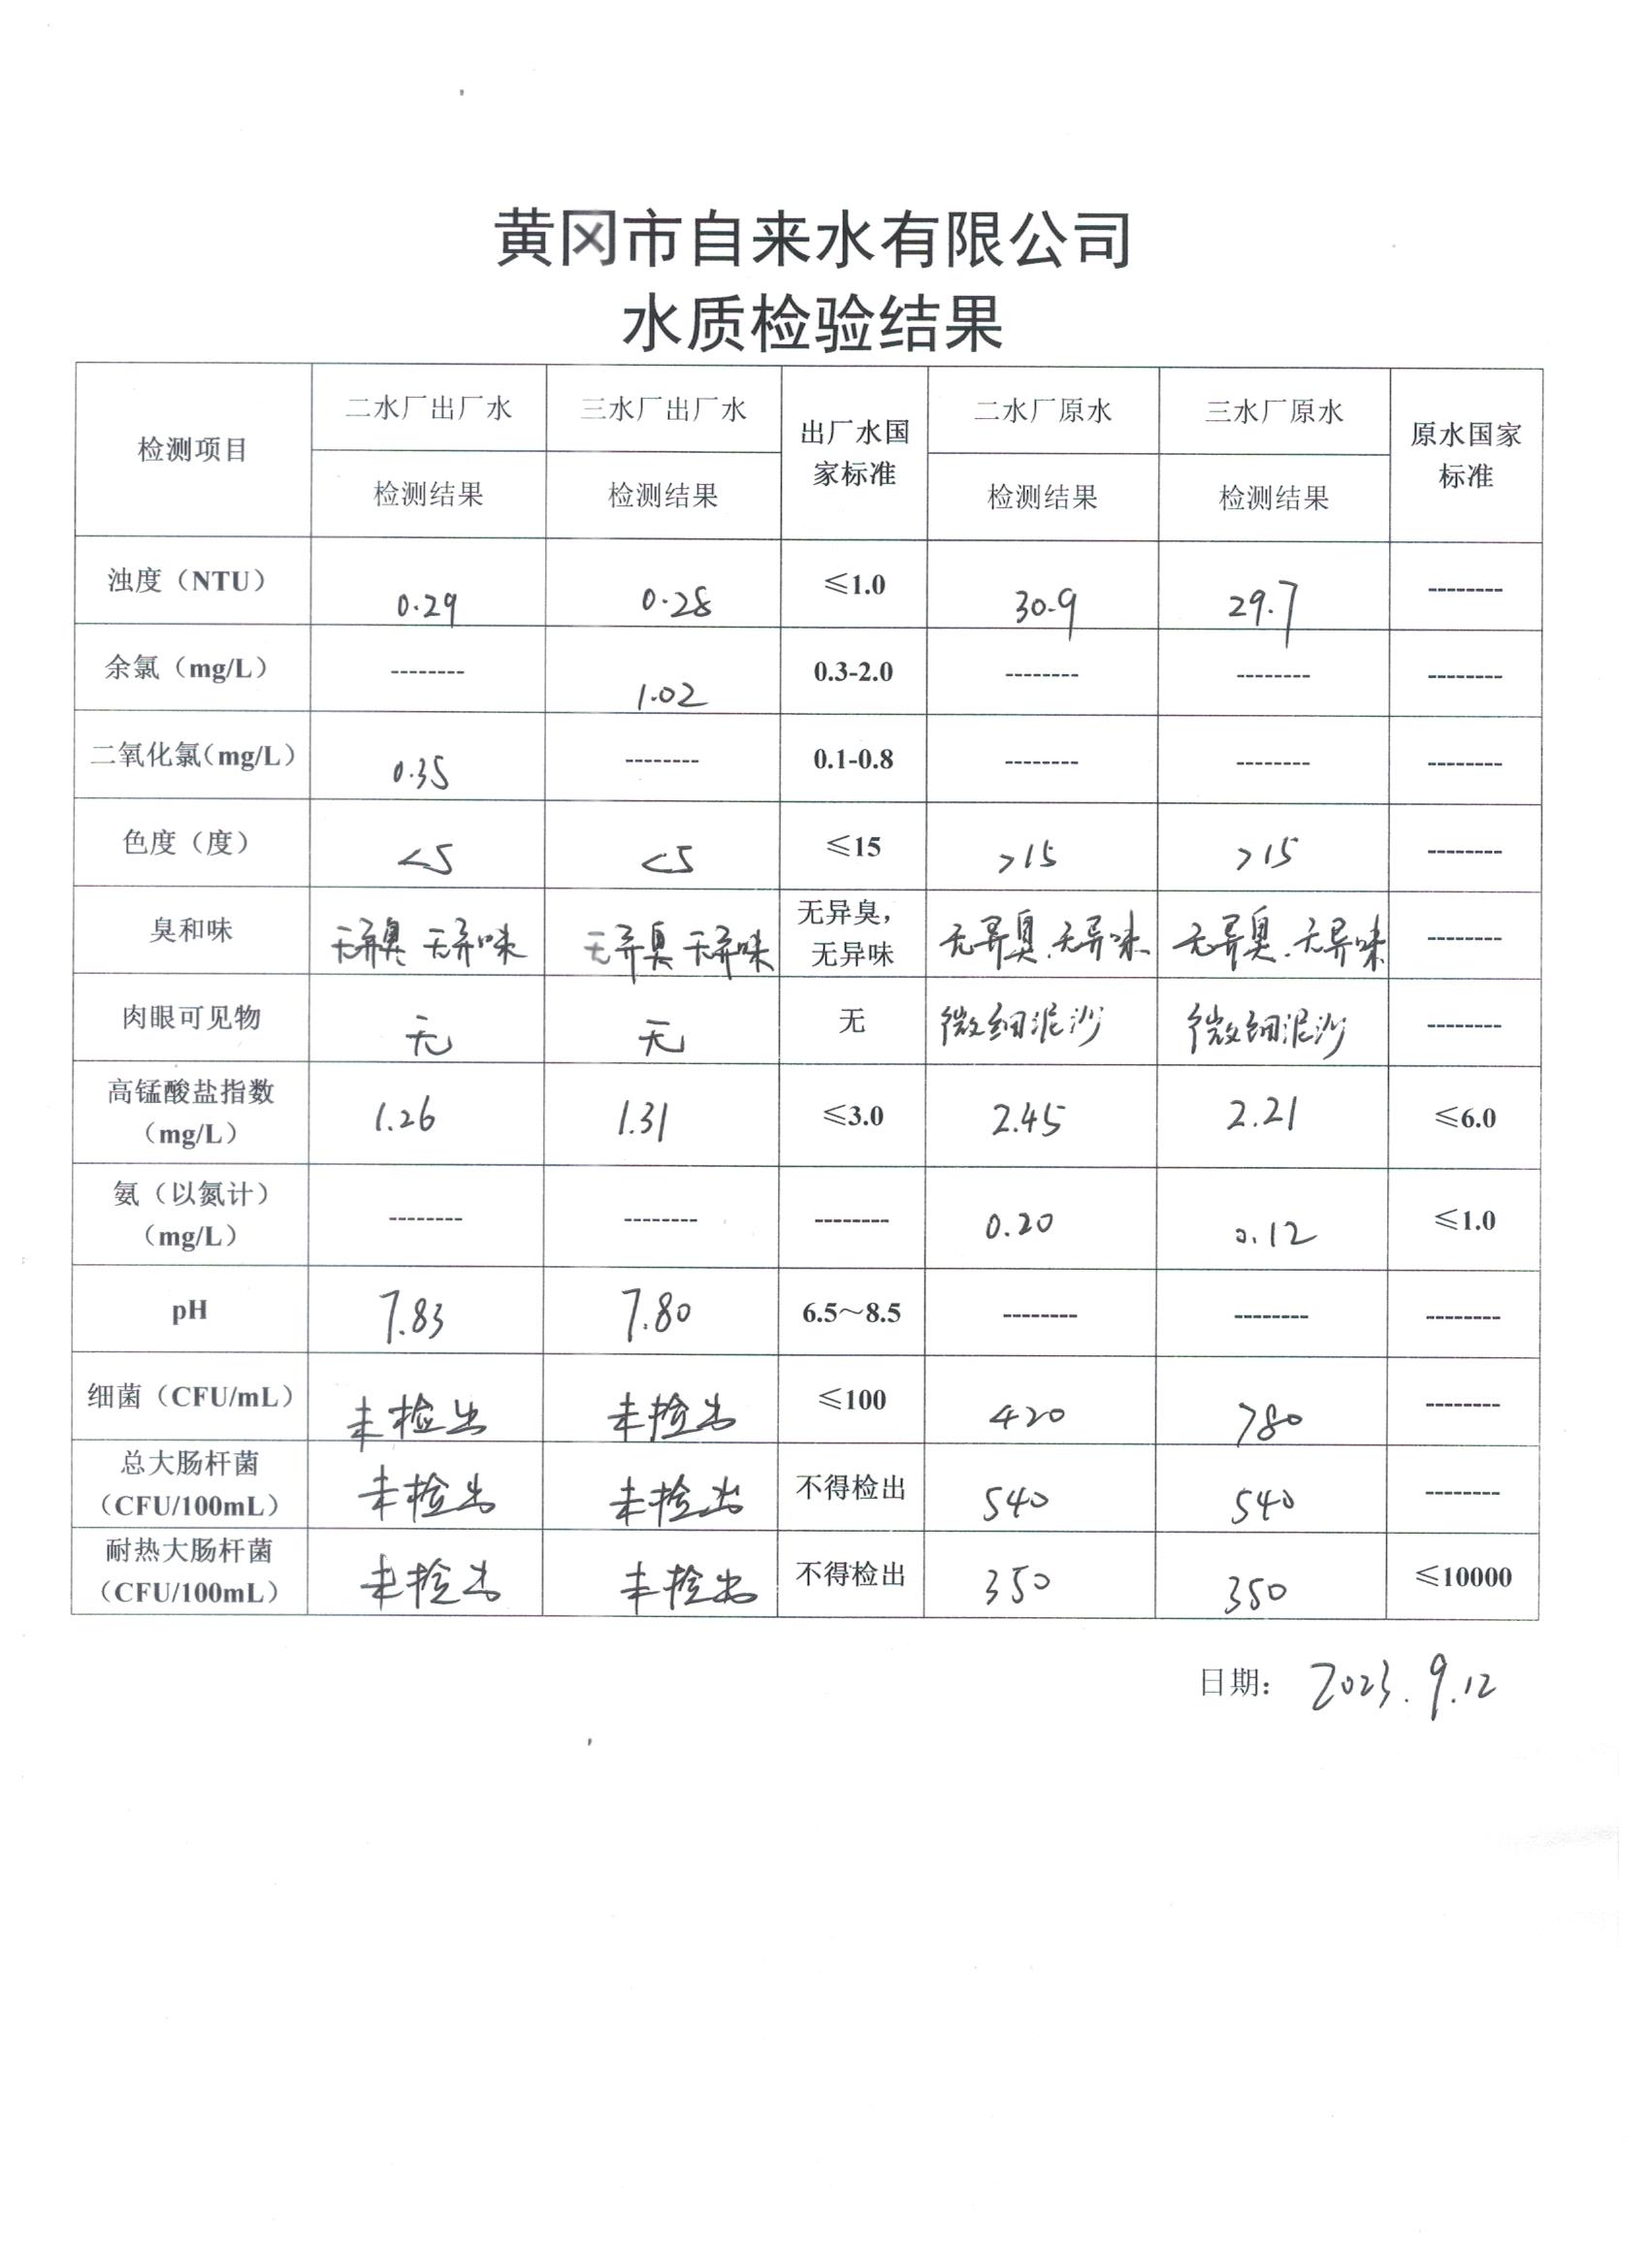 黄冈市自来水有限公司
水质检验结果
检测项目 二水厂出厂水 三水厂出厂水 出厂水国家标准 二水厂原水 三水厂原水 原水国家标准
检测结果 检测结果 检测结果 检测结果
浊度（NTU） 0.29 0.28 ≤1.0 30.9 29.7 --------
余氯（mg/L） -------- 1.02 0.3-2.0 -------- -------- --------
二氧化氯（mg/L） 0.35 -------- 0.1-0.8 -------- -------- --------
色度（度） <5 <5 ≤15 >15 >15 --------
臭和味 无异臭 无异味 无异臭 无异味 无异臭，无异味 无异臭.无异味 无异臭.无异味 --------
肉眼可见物 无 无 无 微细泥沙 微细泥沙 --------
高锰酸盐指数（mg/L） 1.26 1.31 ≤3.0 2.45 2.21 ≤6.0
氨（以氮计）（mg/L） -------- -------- -------- 0.20 0.12 ≤1.0
pH 7.83 7.80 6.5～8.5 -------- -------- --------
细菌（CFU/mL） 未检出 未检出 ≤100 420 780 --------
总大肠杆菌（CFU/100mL） 未检出 未检出 不得检出 540 540 --------
耐热大肠杆菌（CFU/100mL） 未检出 未检出 不得检出 350 350 ≤10000
日期： 2023.9.12